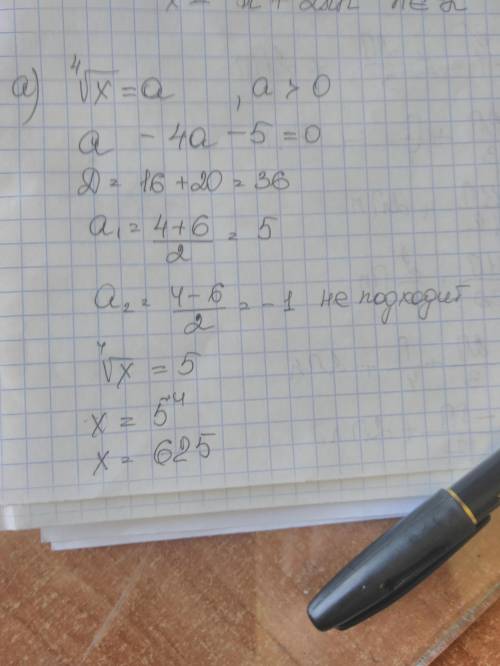 а) ⁴√x = a , a > 0
a - 4a - 5 = 0
Д = 16 + 20 = 36
a₁ = (4+6)/2 = 5
a₂ = (4-6)/2 = -1 не подходит
⁴√x = 5
x = 5⁴
x = 625